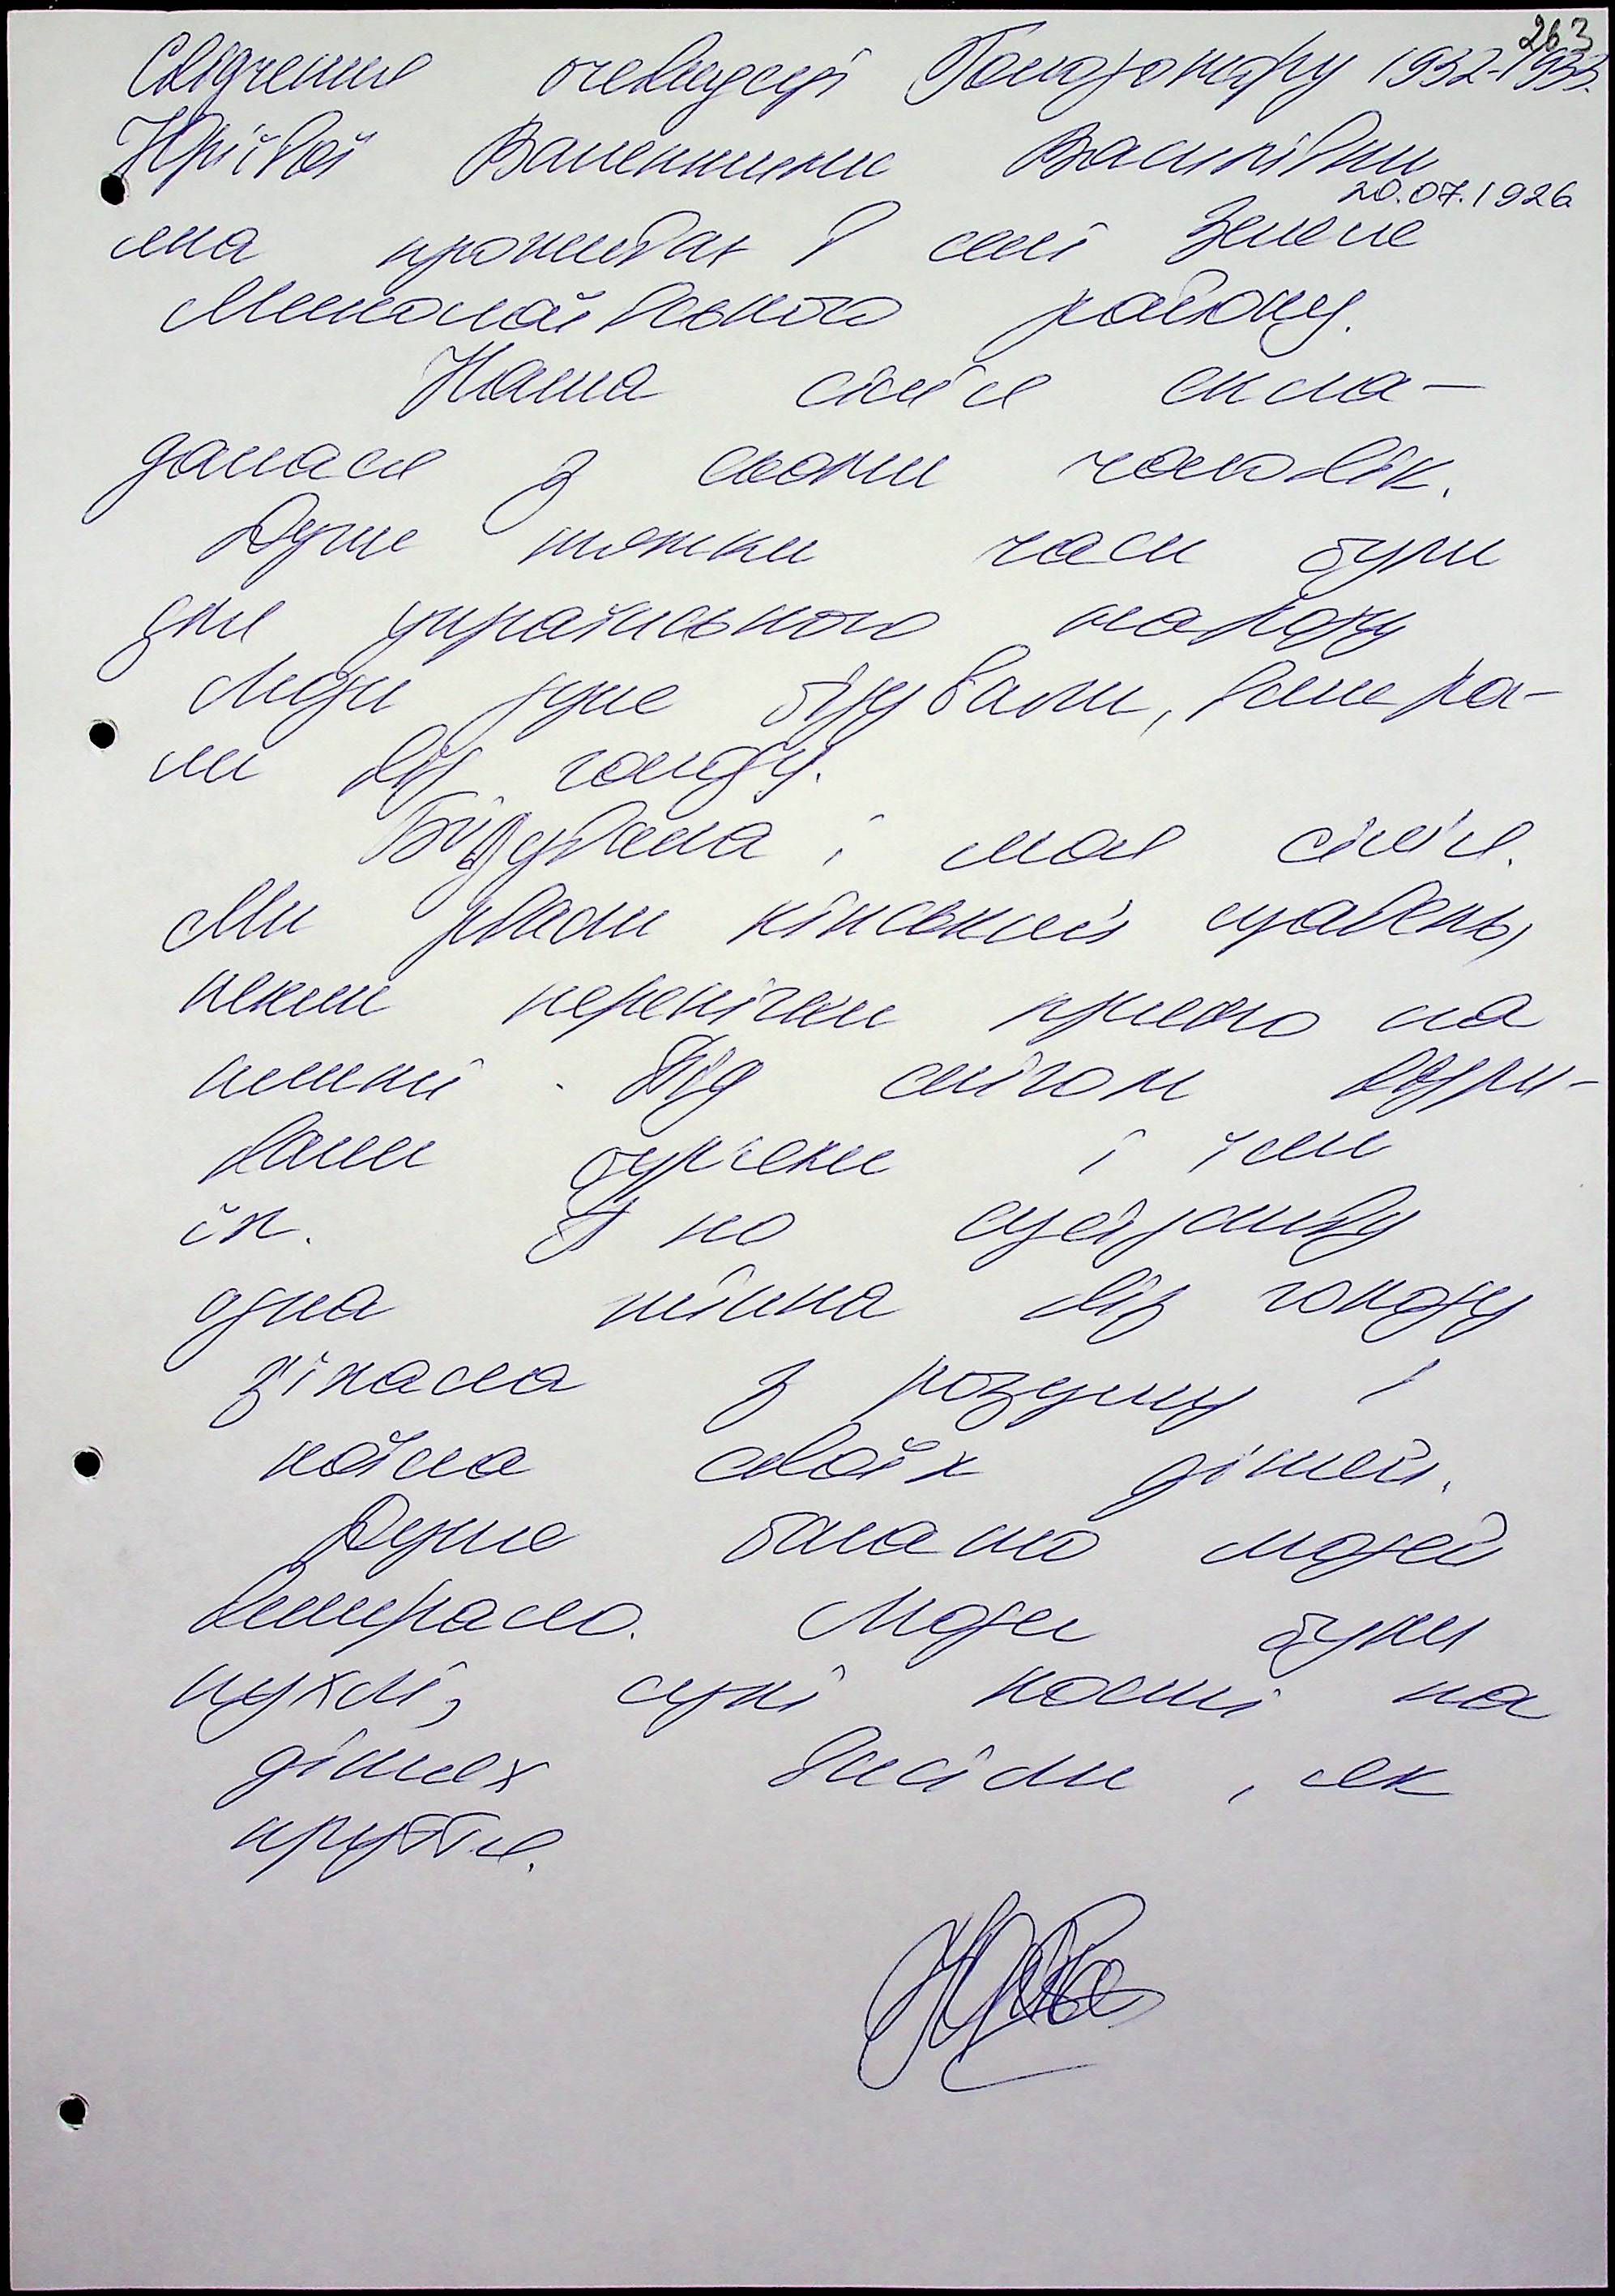 263
Свідчення очевидця Голодомору 1932-1933.
Юрієвої Валентини Василівни
20.07.1926
яка проживає в селі Зелене
Миколаївського району.
Наша сім'я скла-
далася з сьоми чоловік.
Дуже тяжки часи були
для українського народу
Люди дуже бідували, вмера-
ли від голоду.
Бідувала і моя сім'я.
Ми рвали кінський щавель,
пекли перепічки прямо на
плиті. Під снігом відри-
вали буряки і їли
їх. А по сусідству
одна тітка від голоду
з'їхала з розуму і
поїла своїх дітей.
Дуже багато людей
вмирало. Люди були
пухлі, сухі кості на
дітях висіли, як
пруття.